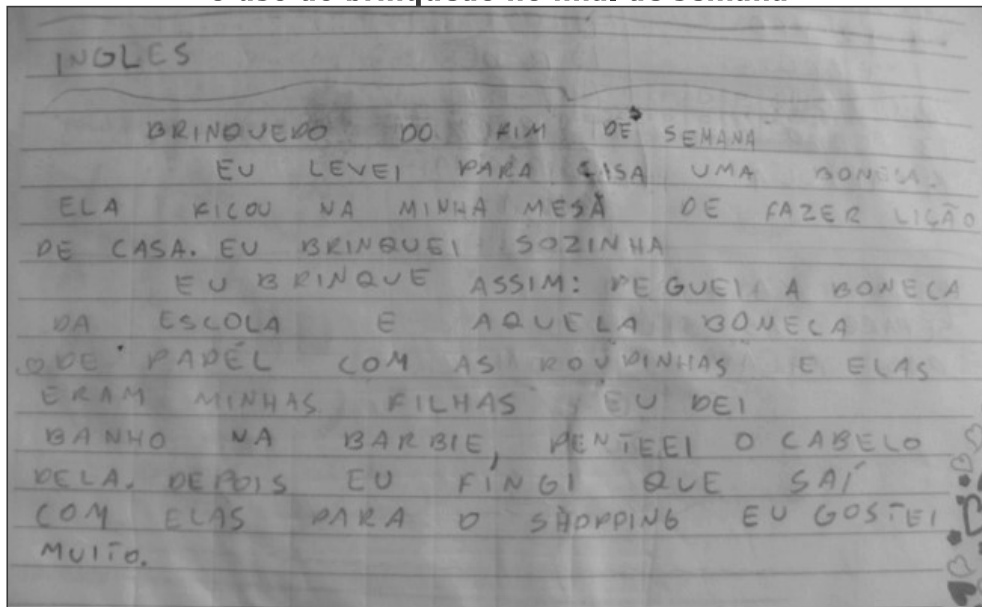 o uso do brinquedo no final de semana
INGLES
BRINQUEDO DO FIM DE SEMANA
EU LEVEI PARA CASA UMA BONECA.
ELA FICOU NA MINHA MESA DE FAZER LIÇÃO
DE CASA. EU BRINQUEI SOZINHA
EU BRINQUE ASSIM: PEGUEI A BONECA
DA ESCOLA E AQUELA BONECA
DE PAPEL COM AS ROUPINHAS E ELAS
ERAM MINHAS FILHAS EU DEI
BANHO NA BARBIE, PENTEEI O CABELO
DELA. DEPOIS EU FINGI QUE SAÍ
COM ELAS PARA O SHOPPING EU GOSTEI
MUITO.